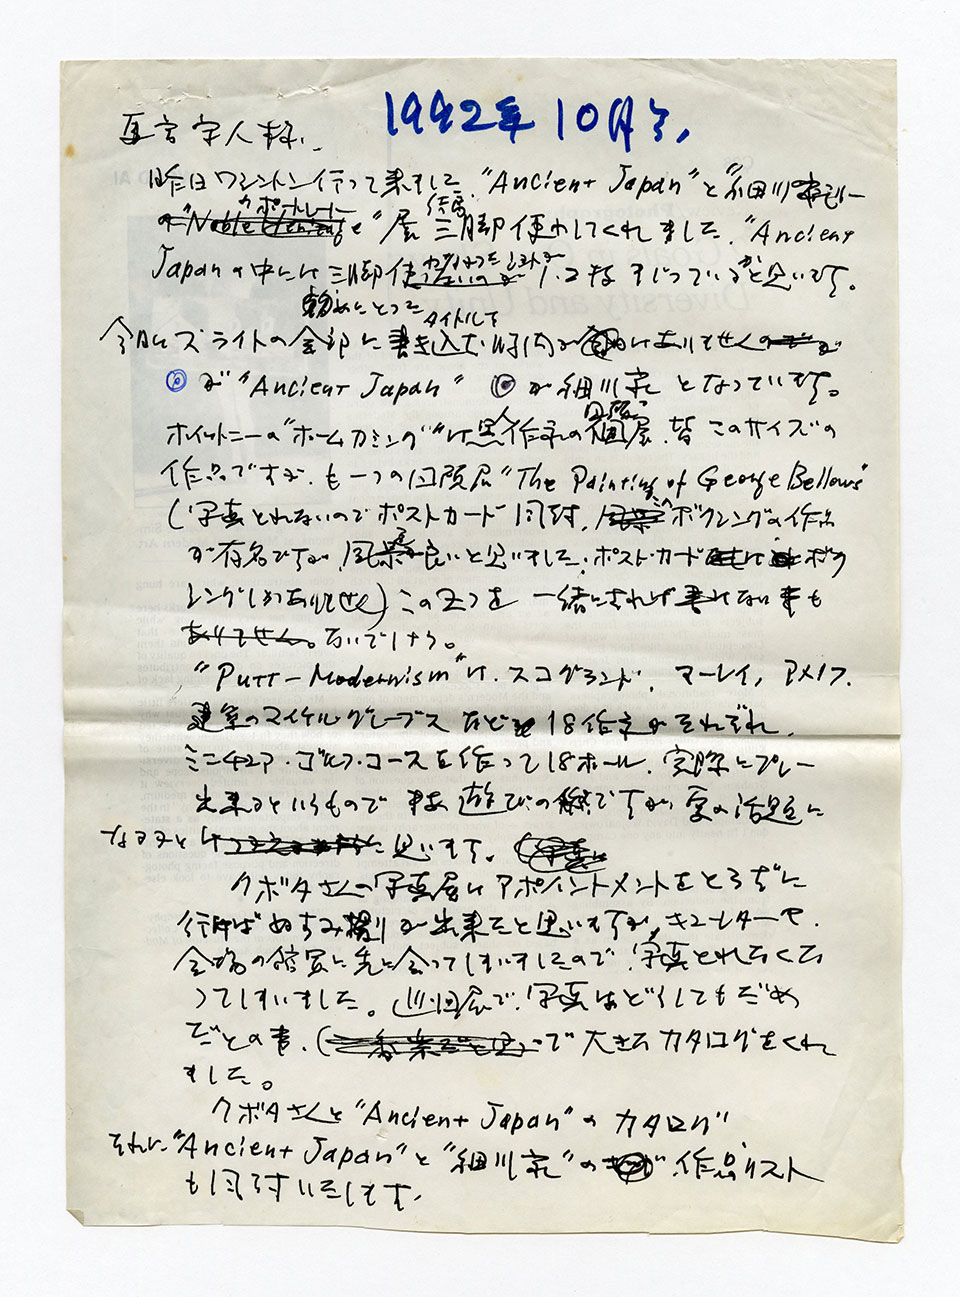 1992年10月号
昨日ワシントン行って来ました。"Ancient Japan"と"細川
ポートレート
"展 三脚使わしてくれました。"Ancient
Japanの中には三脚使 まじっているかと思います。
タイトルを
今日はスライトの全部に書き込む時間がありませんの
が"Ancient Japan" が細川家となっています。
回顧
ホイットニーの"ホームカミング"は黒人作家の個展、皆このサイズの
作品ですが、も一つの回顧展"The Painting of George Bellows"
(写真とれないのでポストカード同封、ボクシングの作品
が有名ですが、風景も良いと思いました。ポスト・カード ボク
シングしかありません) この二つを一緒にされれば
"Putt-Modernism"は、スコグランド、マーレイ、
建築のマイケルグレーブスなど18作家がそれぞれ、
ミニチュア・ゴルフ・コースを作って18ホール、実際にプレー
出来るというもので まあ遊びの ですが、夏の話題に
なると 思います。
クボタさんの写真展はアポイントメントをとらずに
行けばぬすみ撮りが出来たと思いますが、キューレターや、
会場の館員に先に会ってしまいましたので、写真とれなくな
ってしまいました。巡回展で、写真はどうしてもだめ
だとの事、で大きなカタログをくれ
ました。
クボタさんと"Ancient Japan"のカタログ
それに"Ancient Japan"と"細川家"の 作品リスト
も同封いたします。